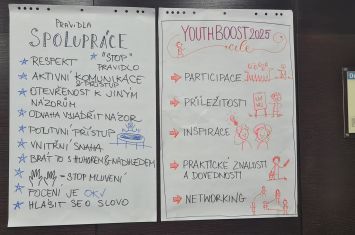 PRAVIDLA
SPOLUPRÁCE
RESPEKT
"STOP"
PRAVIDLO
AKTIVNÍ KOMUNIKACE
& PŘÍSTUP
OTEVŘENOST K JINÝM
NÁZORŮM
ODVAHA VYJÁDŘIT NÁZOR
POZITIVNÍ PŘÍSTUP
VNITŘNÍ SNAHA
BRÁT TO S HUMOREM & NADHLEDEM
- STOP MLUVENÍ
FOCENÍ JE OK
HLÁSIT SE O SLOVO
YOUTHBOOST 2025
cíle
PARTICIPACE
PŘÍLEŽITOSTI
INSPIRACE
PRAKTICKÉ ZNALOSTI
A DOVEDNOSTI
NETWORKING